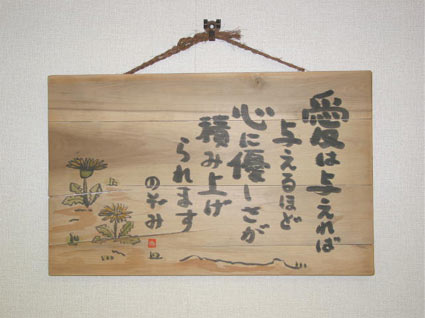 愛は与えれば
与えるほど
心に優しさが
積み上げ
られます
のぞみ